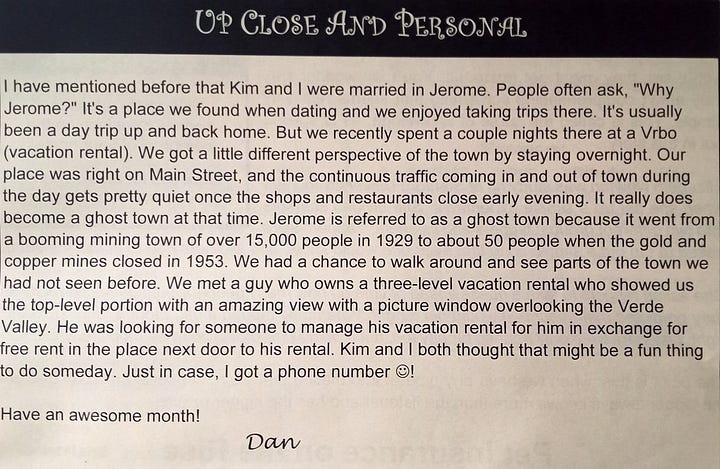 UP CLOSE AND PERSONAL
I have mentioned before that Kim and I were married in Jerome. People often ask, "Why
Jerome?" It's a place we found when dating and we enjoyed taking trips there. It's usually
been a day trip up and back home. But we recently spent a couple nights there at a Vrbo
(vacation rental). We got a little different perspective of the town by staying overnight. Our
place was right on Main Street, and the continuous traffic coming in and out of town during
the day gets pretty quiet once the shops and restaurants close early evening. It really does
become a ghost town at that time. Jerome is referred to as a ghost town because it went from
a booming mining town of over 15,000 people in 1929 to about 50 people when the gold and
copper mines closed in 1953. We had a chance to walk around and see parts of the town we
had not seen before. We met a guy who owns a three-level vacation rental who showed us
the top-level portion with an amazing view with a picture window overlooking the Verde
Valley. He was looking for someone to manage his vacation rental for him in exchange for
free rent in the place next door to his rental. Kim and I both thought that might be a fun thing
to do someday. Just in case, I got a phone number ☺!
Have an awesome month!
Dan